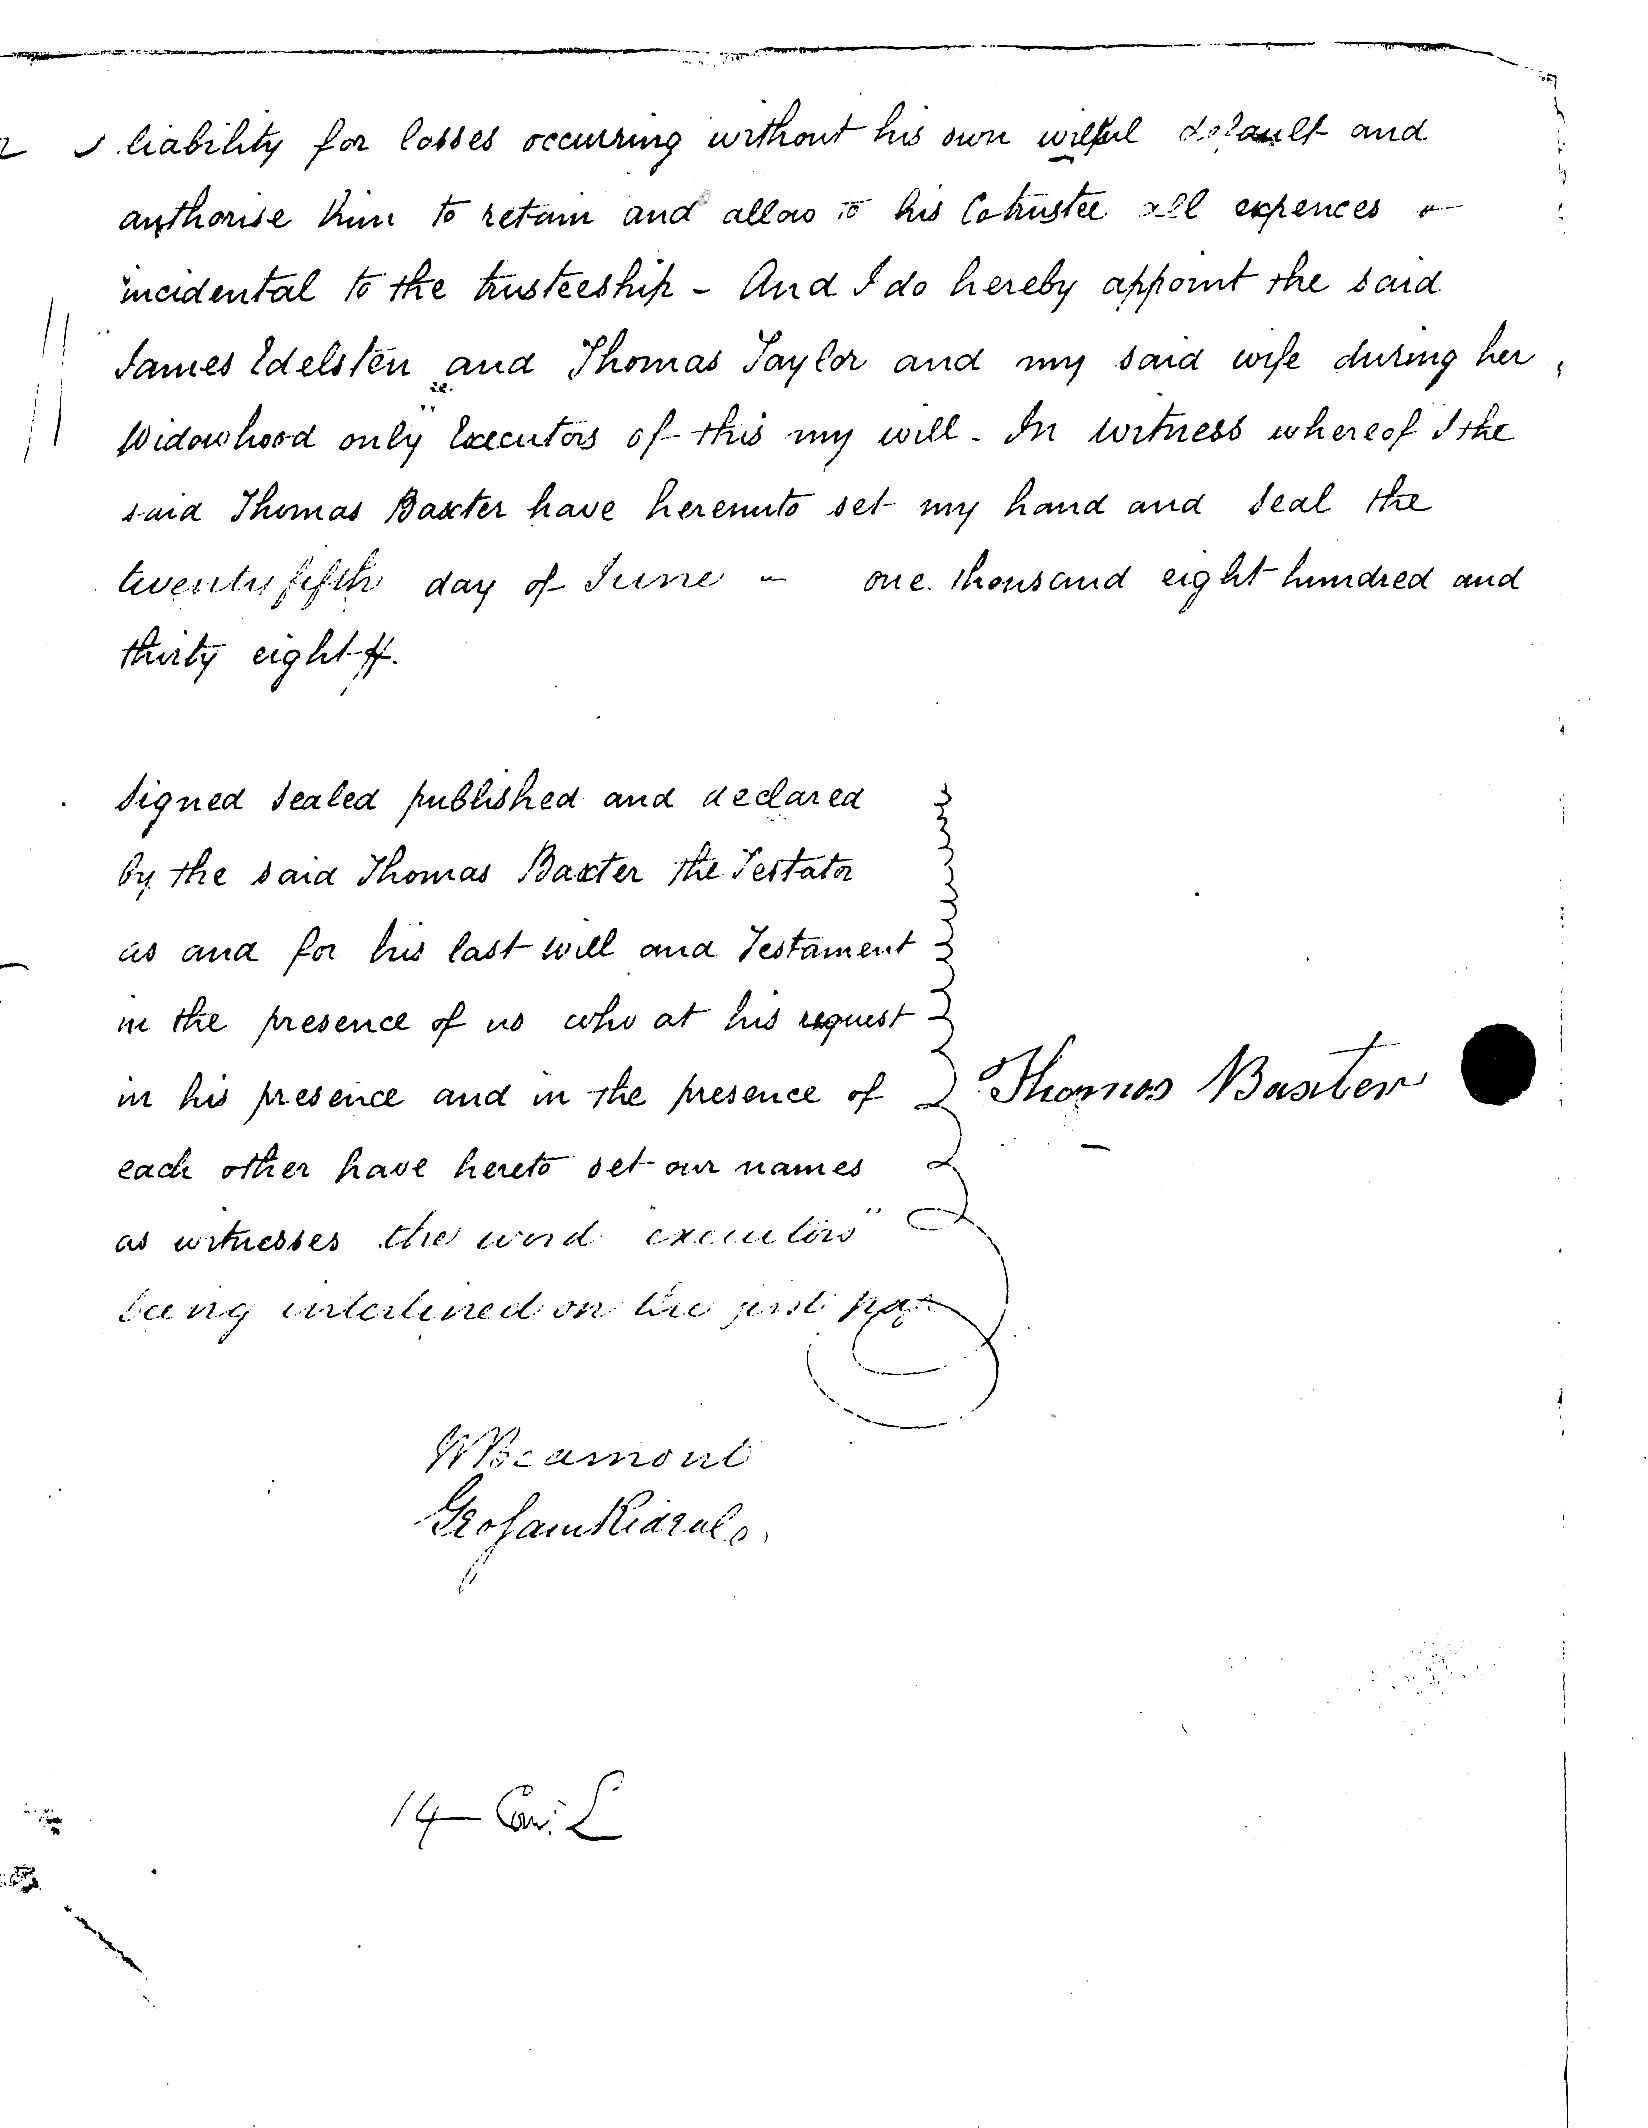 liability for losses occurring without his own wilful default and
authorise him to retain and allow to his Cotrustee all expences
incidental to the trusteeship - And I do hereby appoint the said
James Edelsten and Thomas Taylor and my said wife during her
Widowhood only Executors of this my will - In witness whereof I the
said Thomas Baxter have hereunto set my hand and seal the
twenty fifth day of June - one thousand eight hundred and
thirty eight
Signed sealed published and declared
by the said Thomas Baxter the Testator
as and for his last will and Testament
in the presence of us who at his request
in his presence and in the presence of
each other have hereto set our names
as witnesses the word "executors"
being interlined on the first page
Thomas Baxter
W Beamont
14